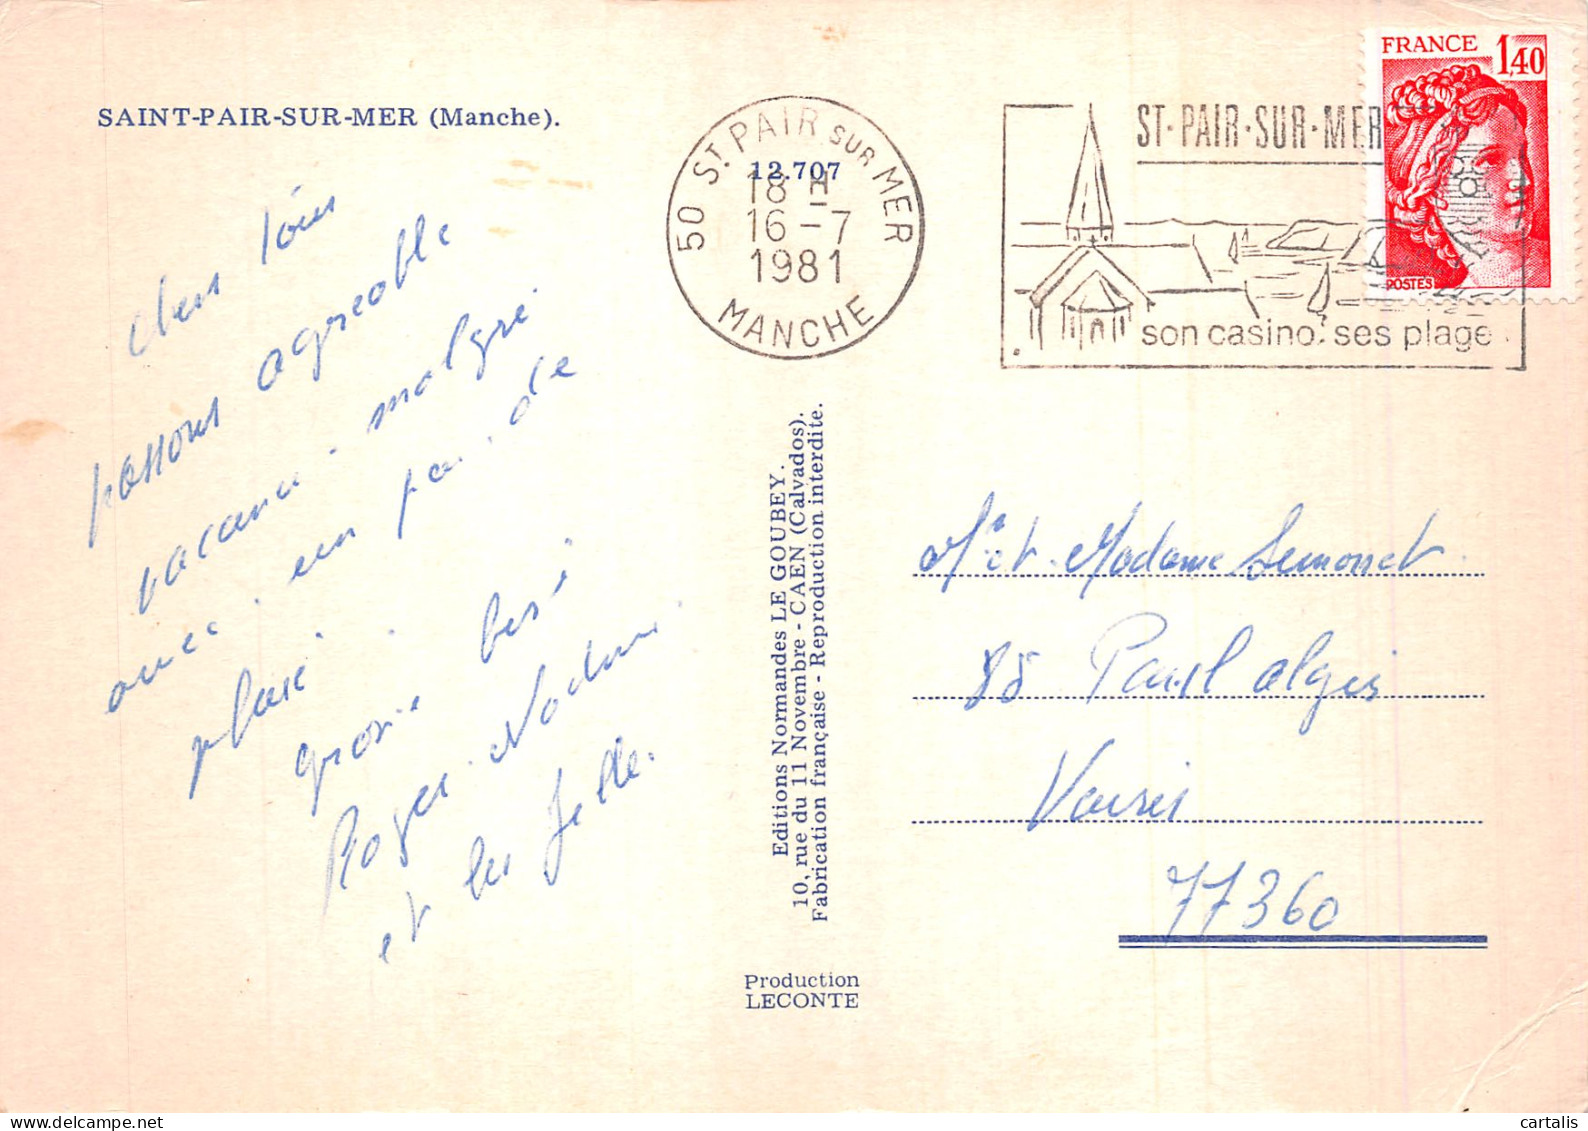 SAINT-PAIR-SUR-MER (Manche).
chers tous
passons agreable
vacance malgré
avec un peu de
pluie
grosse bises
Roger
et les filles.
50 ST. PAIR SUR MER
12.707
18 H
16 - 7
1981
MANCHE
ST·PAIR·SUR·MER
son casino, ses plage
FRANCE 1,40
POSTES
Editions Normandes LE GOUBEY.
10, rue du 11 Novembre - CAEN (Calvados).
Fabrication française - Reproduction interdite.
Production
LECONTE
Mr et Madame Semonnet
85
Vaires
77360
cartalis